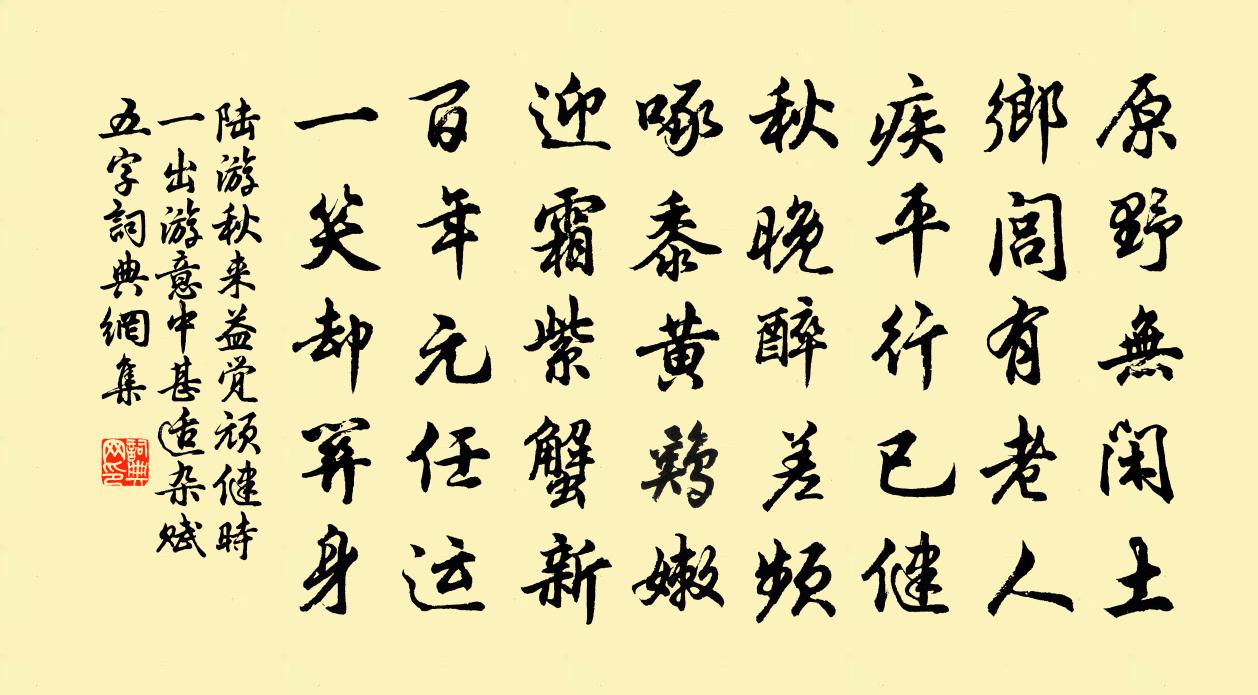 原野無閑土
鄉閭有老人
疾平行已健
秋晚醉差頻
啄黍黄鷄嫩
迎霜紫蟹新
百年元任运
一笑却算身
陆游秋来益觉顽健時
一出游意中甚适杂赋
五字詞典網集
詞典網印